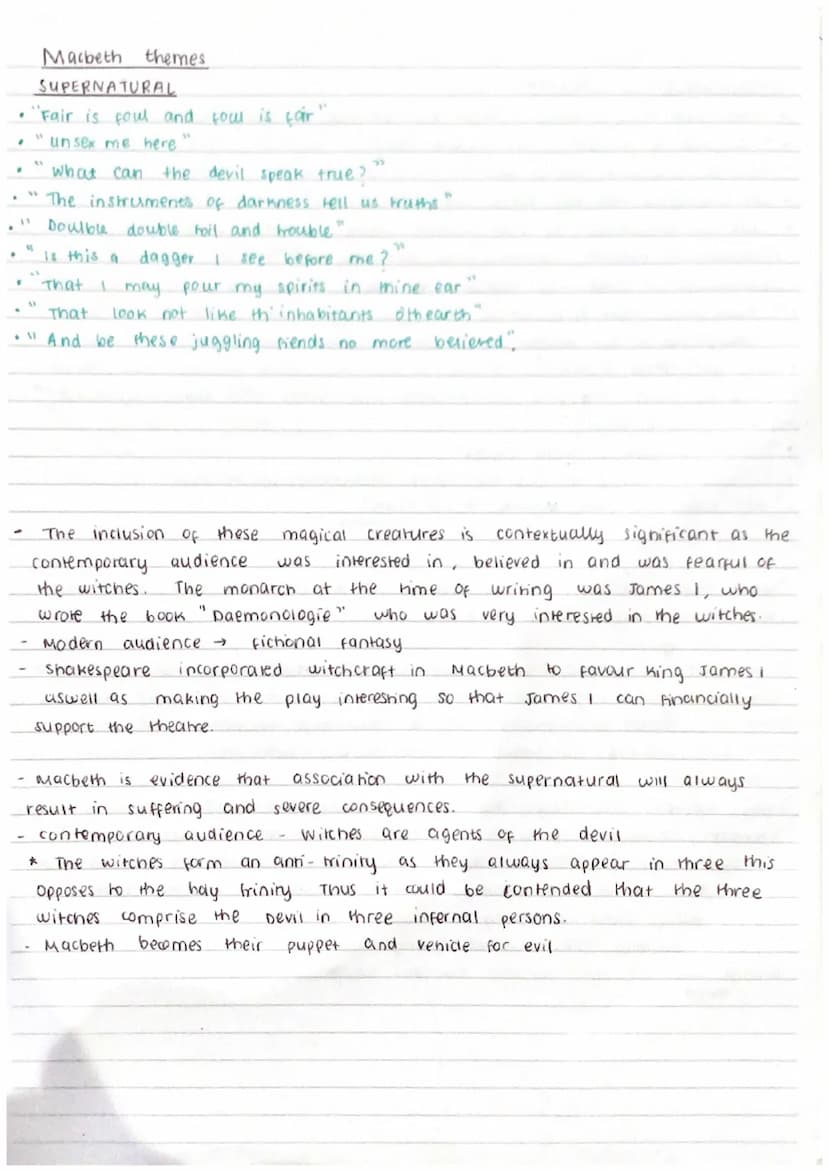 Macbeth themes
SUPERNATURAL
• "Fair is foul and foul is fair"
• "unsex me here"
• "What can the devil speak true?"
• "The instruments of darkness tell us truths"
• "Doulble double toil and trouble"
• "Is this a dagger I see before me?"
• "That I may pour my spirits in thine ear"
• "That look not like th'inhabitants o'thearth"
• "And be these juggling fiends no more believed".
- The inclusion of these magical creatures is contextually significant as the
contemporary audience was interested in, believed in and was fearful of
the witches. The monarch at the time of writing was James I, who
wrote the book "Daemonologie" who was very interested in the witches.
- Modern audience → fictional fantasy
- Shakespeare incorporated witchcraft in Macbeth to favour King James I
aswell as making the play interesting so that James I can financially
support the theatre.
- Macbeth is evidence that association with the supernatural will always
result in suffering and severe consequences.
- contemporary audience - Witches are agents of the devil
* The witches form an anti-trinity as they always appear in three this
opposes to the holy trinity Thus it could be contended that the three
witches comprise the Devil in three infernal persons.
- Macbeth becomes their puppet and vehicle for evil